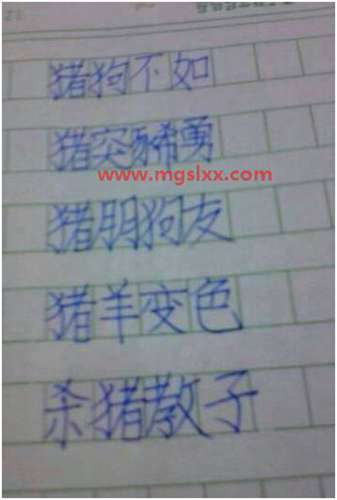 猪狗不如
猪突豨勇
www.mgslxx.com
猪朋狗友
猪羊变色
杀猪教子